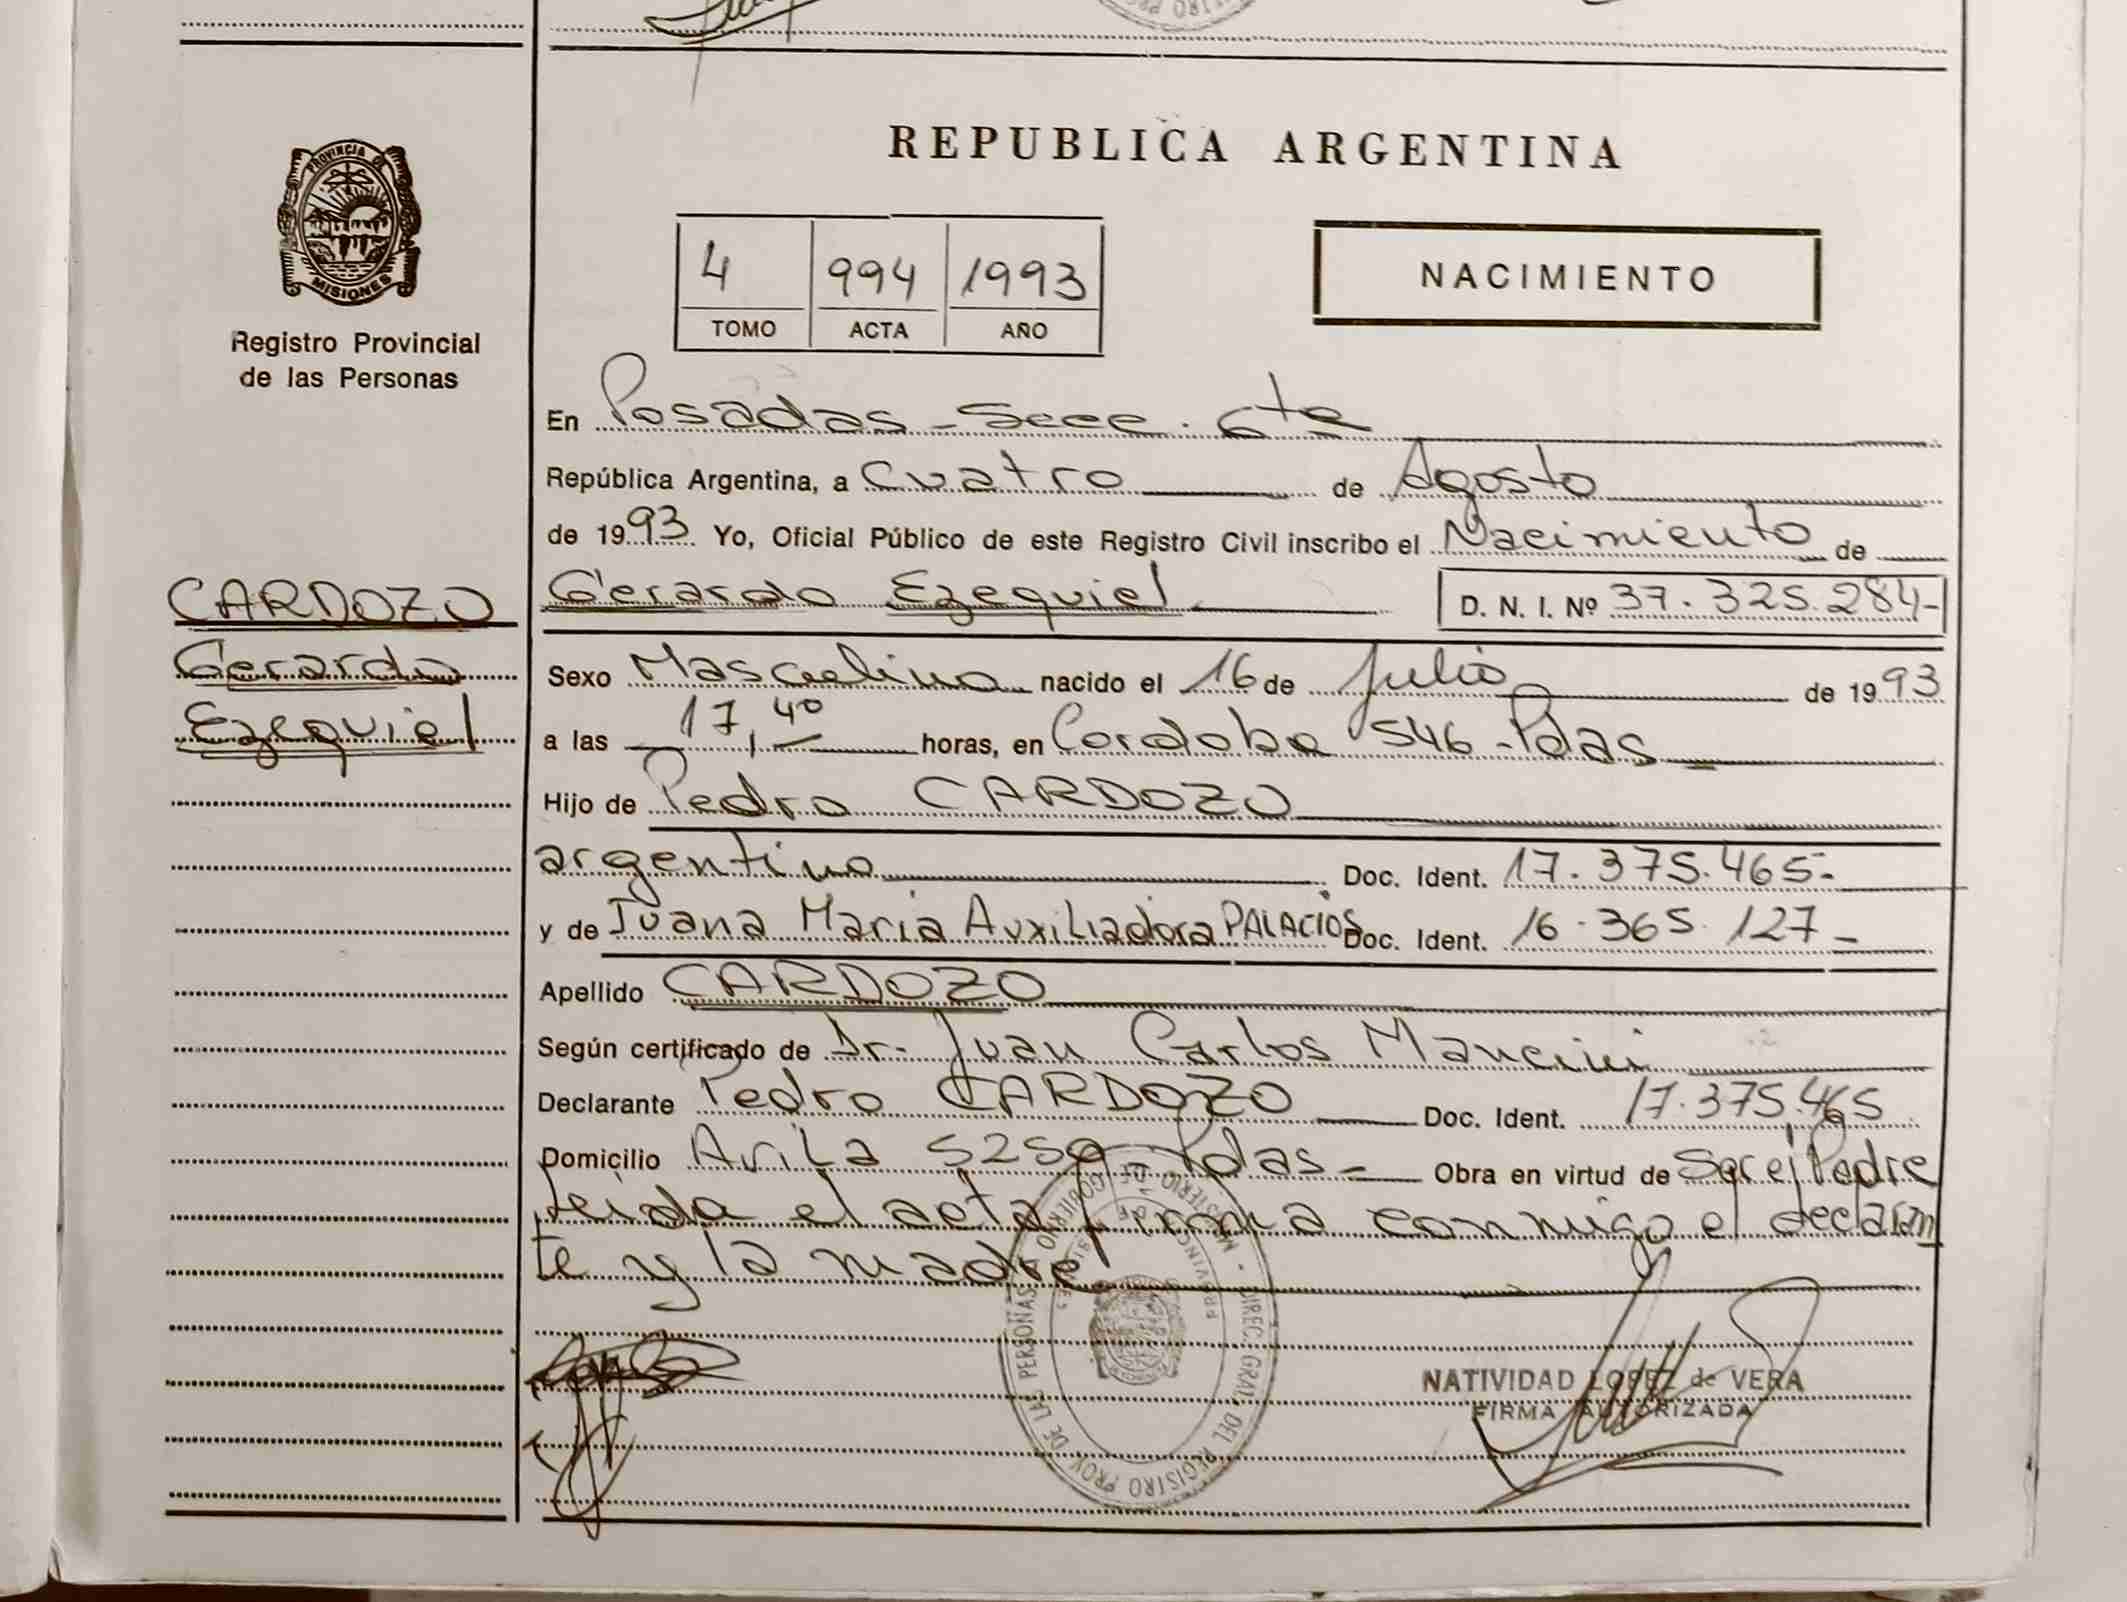 PROVINCIA DE
MISIONES
Registro Provincial
de las Personas
CARDOZO
Gerardo
Ezequiel
REPUBLICA ARGENTINA
4 994 1993
TOMO ACTA AÑO
NACIMIENTO
En Posadas - Secc. 6ta
República Argentina, a Cuatro de Agosto
de 1993 Yo, Oficial Público de este Registro Civil inscribo el Nacimiento de
Gerardo Ezequiel D. N. I. Nº 37.325.284-
Sexo Masculino nacido el 16 de Julio de 1993
a las 17,40 horas, en Cordoba 546 - Pdas
Hijo de Pedro CARDOZO
argentino Doc. Ident. 17.375.465-
y de Juana Maria Auxiliadora PALACIOS Doc. Ident. 16.365.127-
Apellido CARDOZO
Según certificado de Dr. Juan Carlos Mancini
Declarante Pedro CARDOZO Doc. Ident. 17.375.465
Domicilio 5259 Pdas - Obra en virtud de Padre
Leida el acta firma conmigo el declaran
te y la madre
MINISTERIO DE GOBIERNO
DIREC. GRAL. DEL REGISTRO PROV. DE LAS PERSONAS
NATIVIDAD LOPEZ de VERA
FIRMA AUTORIZADA